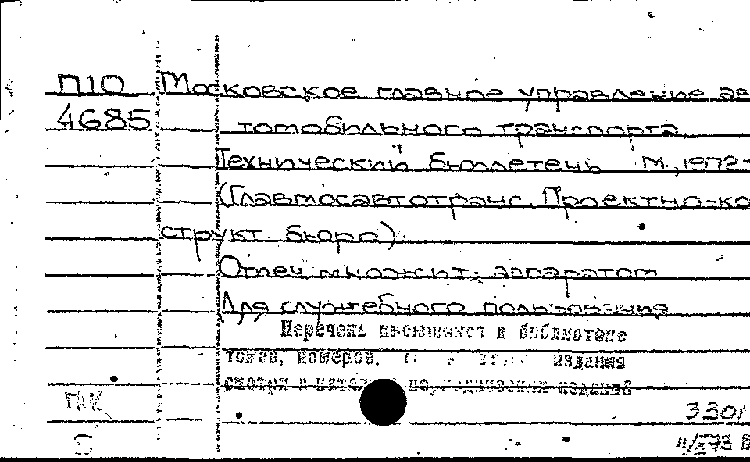 П10 Московское главное управление ав
4685 томобильного транспорта
Технический бюллетень М., 1972-
(Главмосавтотранс. Проектно-ко
структ. бюро)
Отпеч. множит. аппаратом
Для служебного пользования
Перечень имеющихся в библиотеке
томов, номеров, издания
смотри в изданий
3301